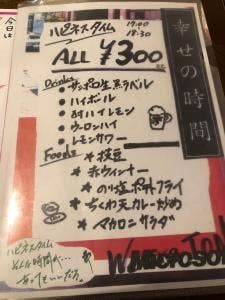 今日は
ハピネスタイム 17:00〜18:30
ALL ¥300
幸せの時間
Drinks
・サッポロ生黒ラベル
・ハイボール
・酎ハイレモン
・ウーロンハイ
・レモンサワー
Foods
＊枝豆
＊赤ウィンナー
＊のり塩ポテトフライ
＊ちくわ天カレー炒め
＊マカロニサラダ
ハピネスタイム
そんな時間が…
あってもいいだろう。